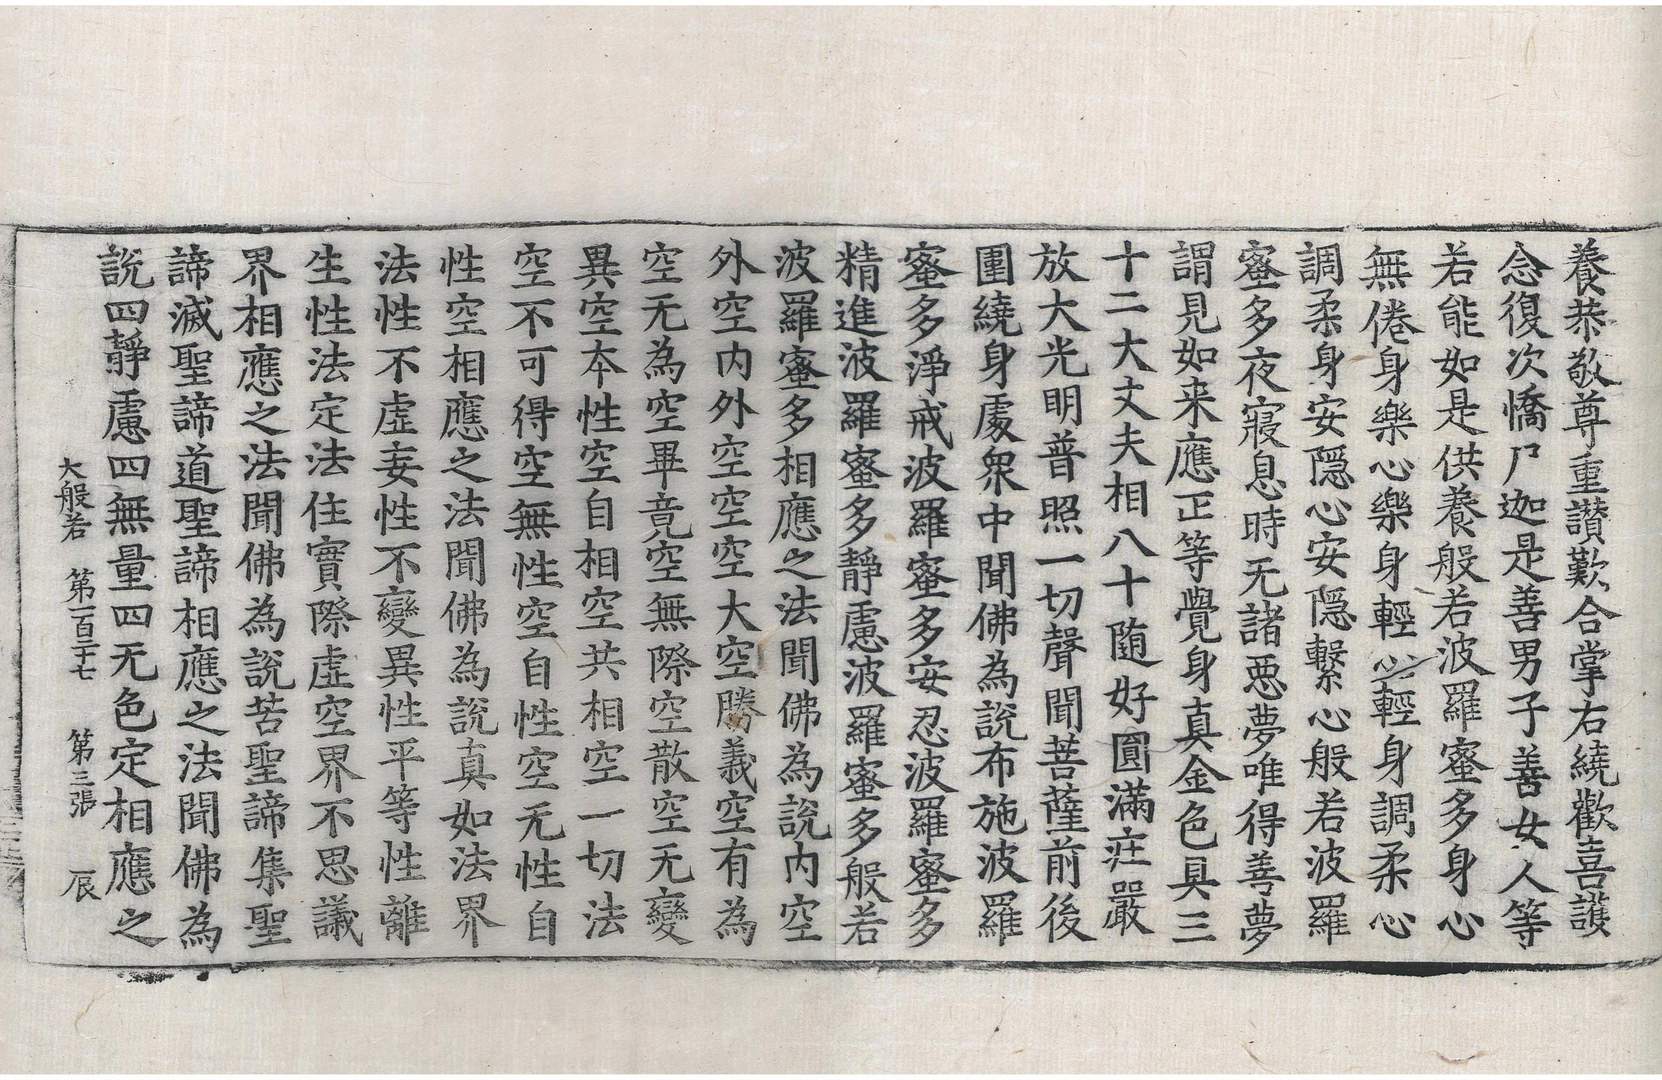 養恭敬尊重讃歎合掌右繞歡喜護
念復次憍尸迦是善男子善女人等
若能如是供養般若波羅蜜多身心
無倦身樂心樂身輕心輕身調柔心
調柔身安隱心安隱繫心般若波羅
蜜多夜寢息時无諸惡夢唯得善夢
謂見如来應正等覺身真金色具三
十二大丈夫相八十随好圓滿莊嚴
放大光明普照一切聲聞菩薩前後
圍繞身處衆中聞佛為説布施波羅
蜜多淨戒波羅蜜多安忍波羅蜜多
精進波羅蜜多靜慮波羅蜜多般若
波羅蜜多相應之法聞佛為説内空
外空内外空空空大空勝義空有為
空无為空畢竟空無際空散空无變
異空本性空自相空共相空一切法
空不可得空無性空自性空无性自
性空相應之法聞佛為説真如法界
法性不虛妄性不變異性平等性離
生性法定法住實際虛空界不思議
界相應之法聞佛為説苦聖諦集聖
諦滅聖諦道聖諦相應之法聞佛為
説四靜慮四無量四无色定相應之
大般若　第一百二十七　第三張　辰